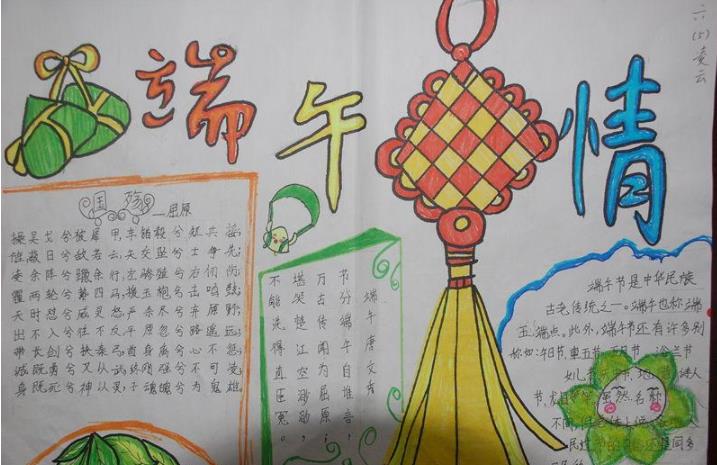 端午情
六(5)凌云
国殇
——屈原
操吴戈兮被犀甲,车错毂兮短兵接;
旌蔽日兮敌若云,矢交坠兮士争先;
凌余阵兮躐余行,左骖殪兮右刃伤;
霾两轮兮絷四马,援玉枹兮击鸣鼓;
天时怼兮威灵怒,严杀尽兮弃原野;
出不入兮往不反,平原忽兮路遥远;
带长剑兮挟秦弓,首身离兮心不惩;
诚既勇兮又以武,终刚强兮不可凌;
身既死兮神以灵,子魂魄兮为鬼雄。
端午 唐 文秀
节分端午自谁言,
万古传闻为屈原;
堪笑楚江空渺渺,
不能洗得直臣冤。
端午节是中华民族
古老传统之一。端午也称端
五,端点。此外,端午节还有许多别
称,如:午日节、重五节、五月节、浴兰节
女儿节、天中节、地腊、诗人
节,尤其 虽然名称
不同,但
民过节的 还是同多